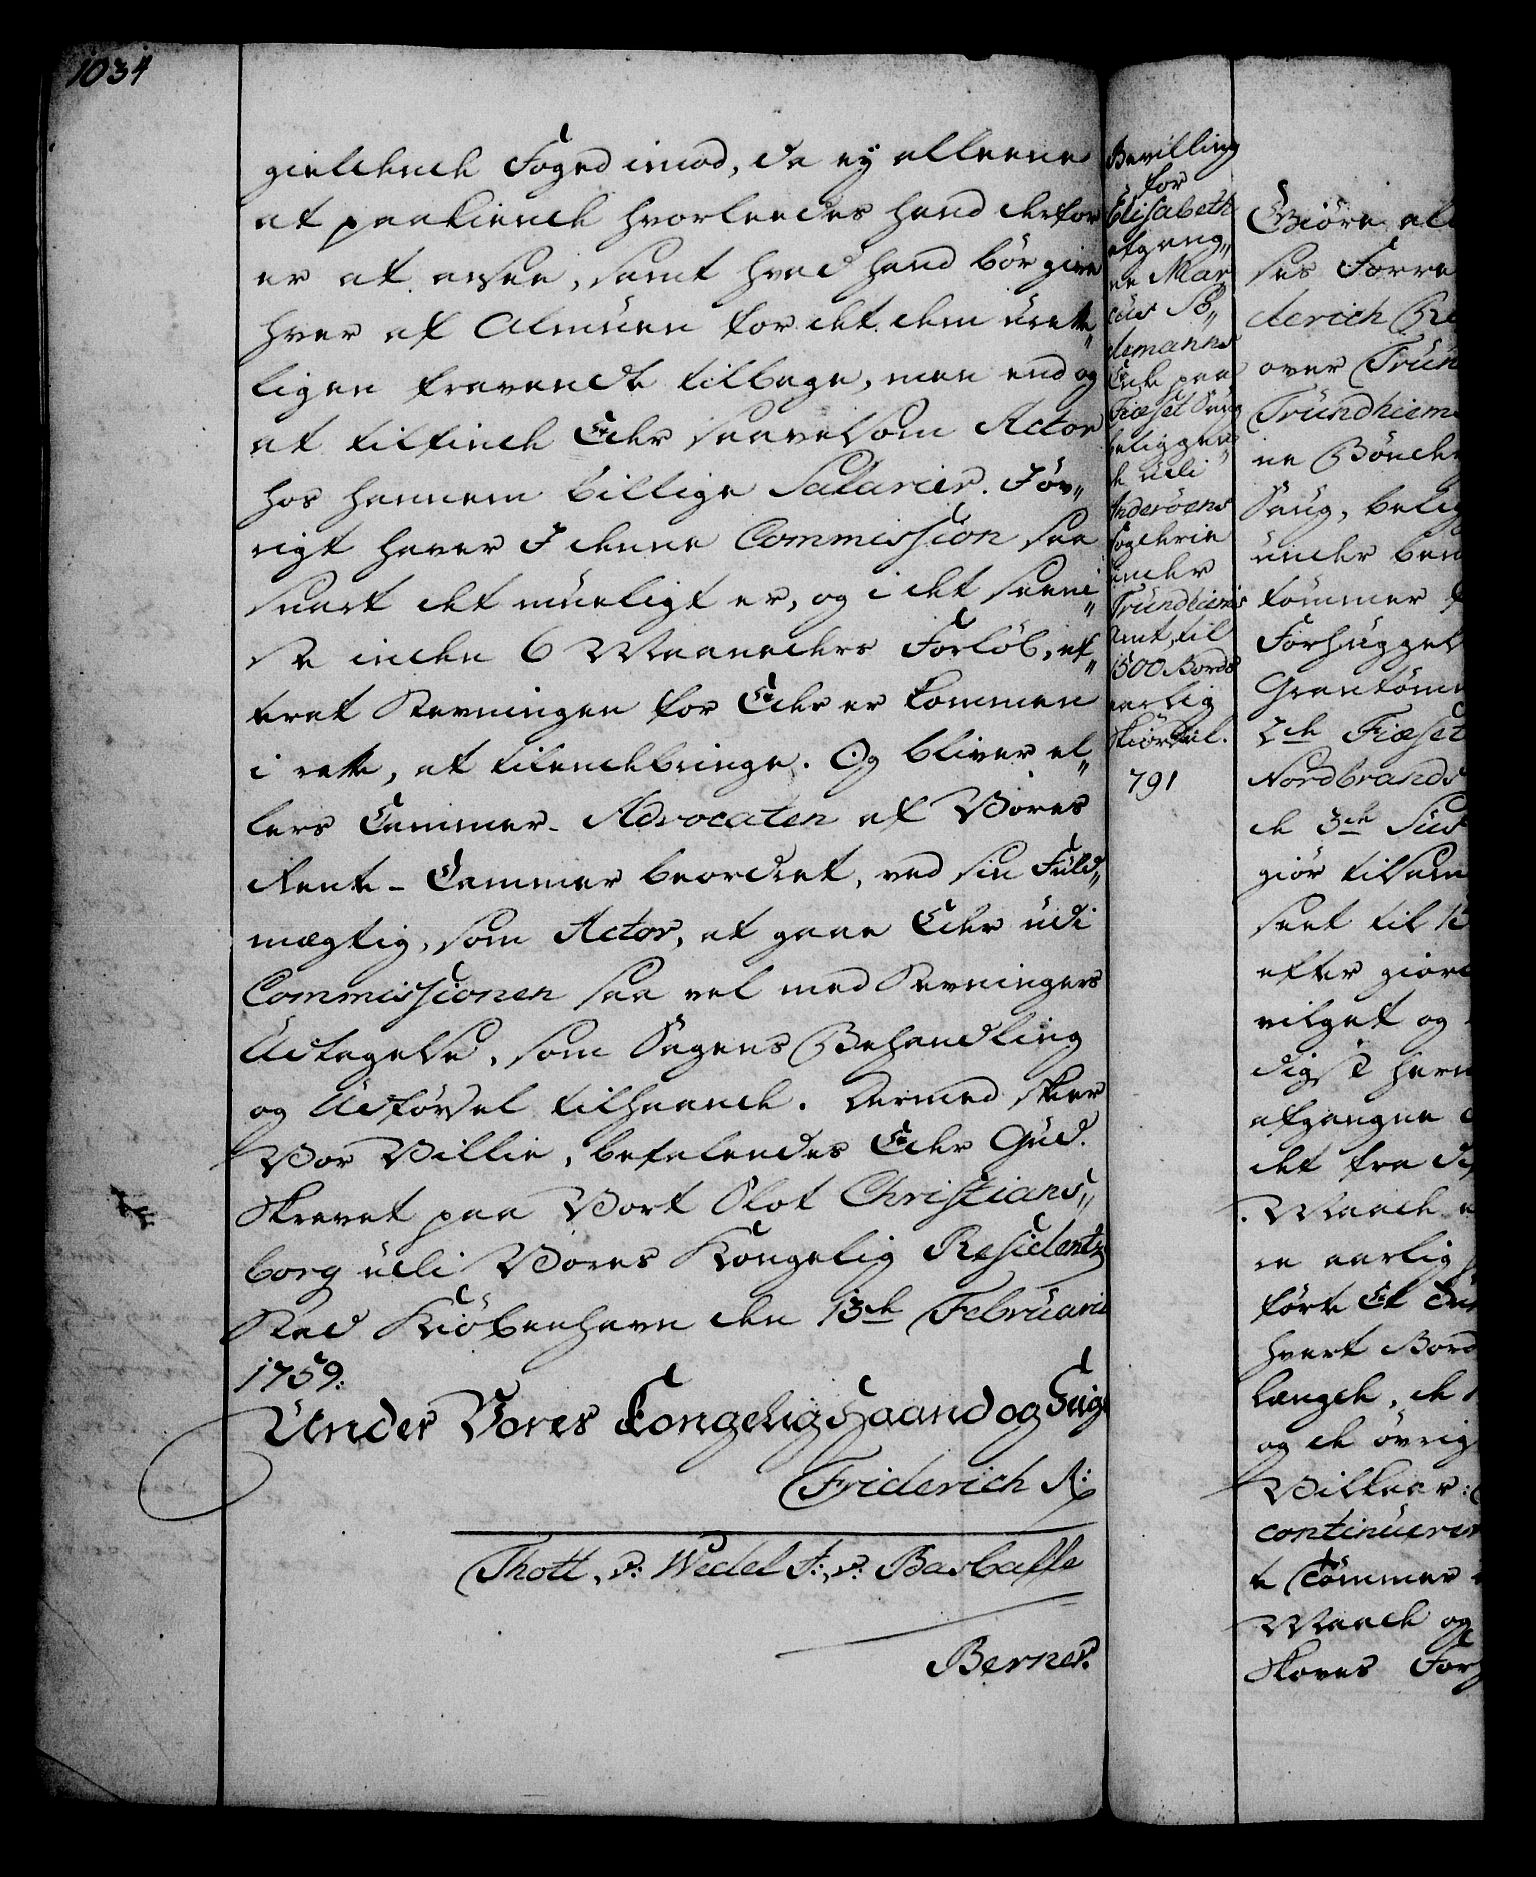 1034
gieldende Foged imod, da ey alleene
at paakiende hvorleedes hand derfor
er at ansee, samt hvad hand bör give
hver af Almüen for det dem ürett„
ligen fravendte tilbage, men end og
at tilfinde Eder saavelsom Actor
hos hannem billige Salarier. Föv„
rigt haver I denne Commission saa
snart det müeligt er, og i det seeni„
ste inden 6 Maaneders Forlöb, ef„
terat Stevningen for Eder er kommen
i rette, at tilendebringe. Og bliver el„
lers Cammer-Advocaten af Vores
Rente-Cammer beordret, ved sin Fuld„
mægtig, som Actor, at gaae Eder udi
Commissionen saa vel med Stevningers
Udtagelse, som Sagens Behandling
og Udförsel tilhaande. Dermed skeer
Vor Villie, befalendes Eder Gud.
Skrevet paa Vort Slot Christians„
borg udi Vores Kongelig Residentz
Stad Kiöbenhavn den 13de Februarii
1759.
Under Vores Kongelig Haand og Seigl
Friderich R:
Thott, v: Wedel F:, v: Barballe
Berner.
Bevilling
for
Elisabeth
afgang„
ne Mar„
cus Bö„
demanns
Enke paa
Fiæset Saug
beliggen„
de udi
Inderöens
Fogderie
under
Trundhiems
Amt, til
1500 Bords
aarlig
Skiörsel.
791
Giöre al
ses Forre
derich
over Trun
Trundhiem
ne Bönder
Saug, belig
under
tömmer
Forhugget
Grantöm
2de Fiæset
Nordbrands
de 3de
giör tilsam
sat til
efter giort
vilget og
digst her
afgangne
det fra
Maade
re aarlig
före Et
hvert Bord
længde, de
og de övrig
Vilkaar:
continuere
te Tömmer
Maade og
Skoves For